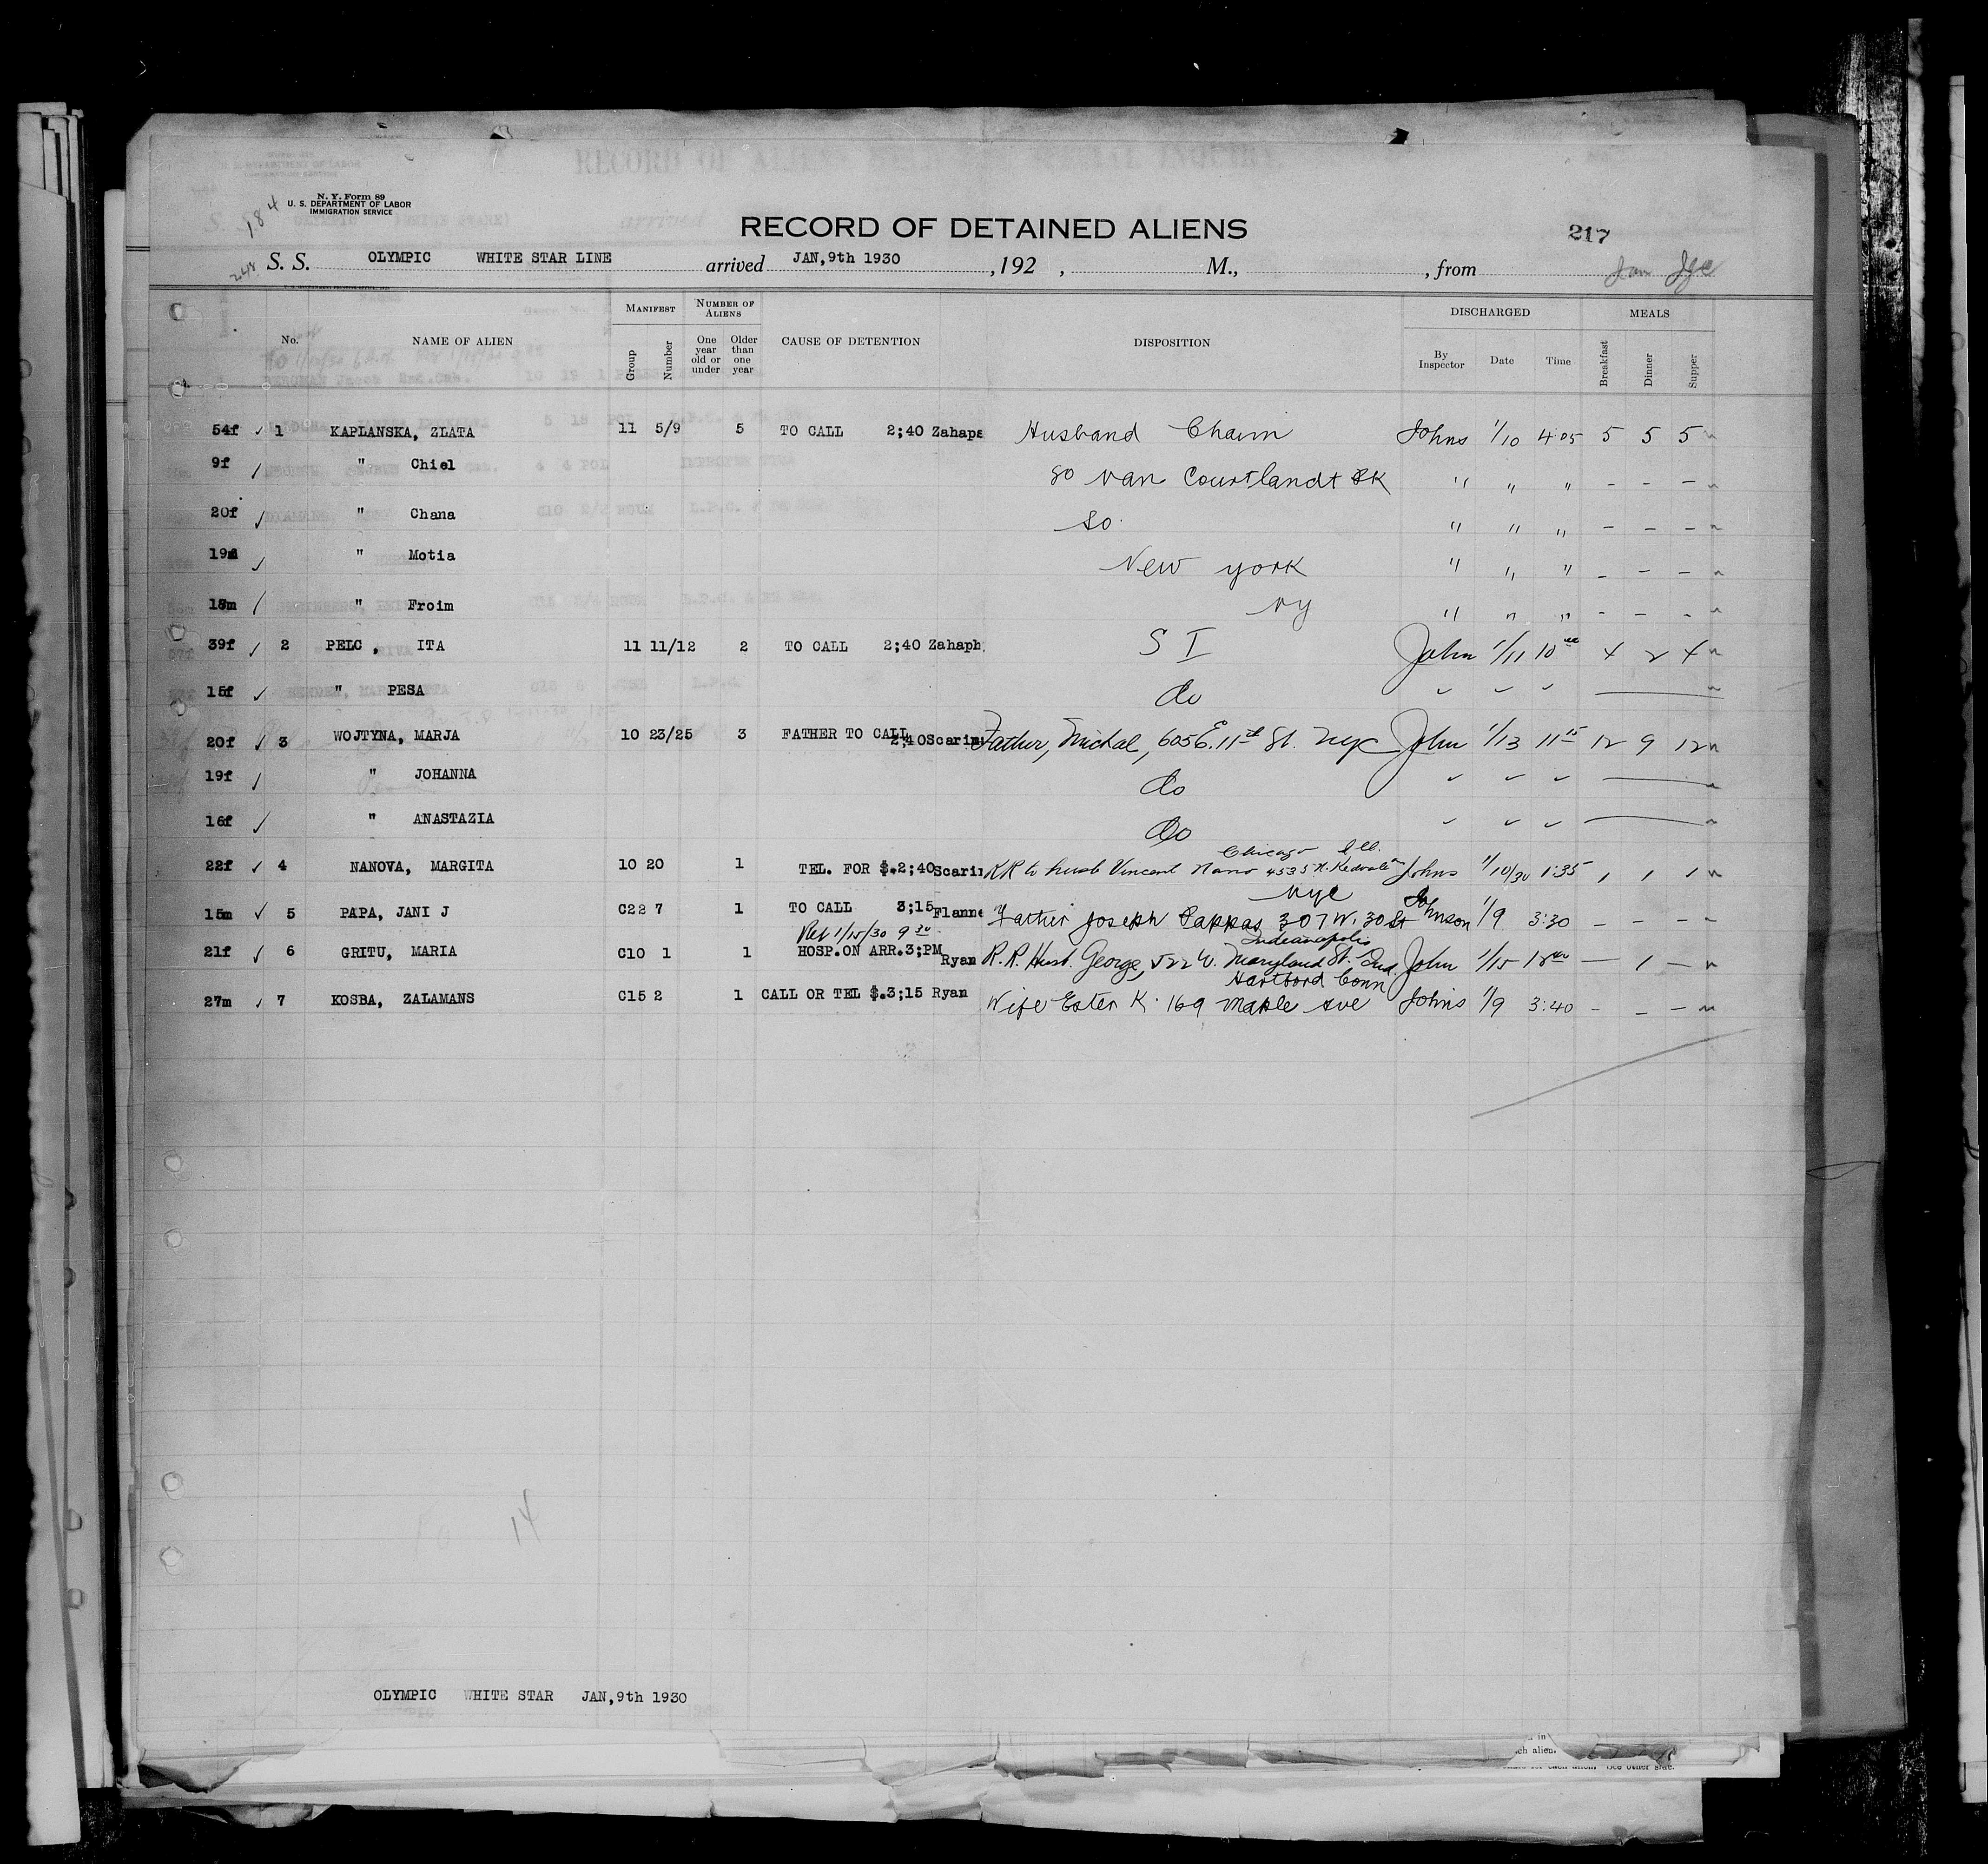 N. Y. Form 89
U. S. DEPARTMENT OF LABOR
IMMIGRATION SERVICE
184
248
RECORD OF DETAINED ALIENS
217
S. S. OLYMPIC WHITE STAR LINE arrived JAN,9th 1930 ,192 , M., , from
No. NAME OF ALIEN MANIFEST Group Number NUMBER OF ALIENS One year old or under Older than one year CAUSE OF DETENTION DISPOSITION DISCHARGED By Inspector Date Time MEALS Breakfast Dinner Supper
54f ✓ 1 KAPLANSKA, ZLATA 11 5/9 5 TO CALL 2;40 Zahapa Husband Chaim Johns 1/10 4 05 5 5 5
9f ✓ " Chiel 80 Van Courtlandt PK " " " - - -
20f ✓ " Chana So. " " " - - -
19m ✓ " Motia New York " " " - - -
18m ✓ " Froim NY " " " - - -
39f ✓ 2 PELC , ITA 11 11/12 2 TO CALL 2;40 Zahaph S I John 1/11 10 4 2 4
15f ✓ " PESA do ✓ ✓ ✓
20f ✓ 3 WOJTYNA, MARJA 10 23/25 3 FATHER TO CALL 2;40 Scarin Father, Michal, 605 E. 11th St. NYC John 1/13 11 15 12 9 12
19f ✓ " JOHANNA do ✓ ✓ ✓
16f ✓ " ANASTAZIA do ✓ ✓ ✓
Chicago Ill.
22f ✓ 4 NANOVA, MARGITA 10 20 1 TEL. FOR $.2;40 Scarin RR to husb Vincent Nano 4535 N. Johns 1/10/30 1:35 1 1 1
NYC
15m ✓ 5 PAPA, JANI J C22 7 1 TO CALL 3;15 Flanne Father Joseph Pappas 307 W. 30 St Johnson 1/9 3:30 - - -
Rel 1/15/30 9 30
Indianapolis
21f ✓ 6 GRITU, MARIA C10 1 1 HOSP.ON ARR.3;PM Ryan R.R. Husb. George, 522 W. Maryland St. Ind. John 1/15 12 - 1 -
Hartford Conn
27m ✓ 7 KOSBA, ZALAMANS C15 2 1 CALL OR TEL $.3;15 Ryan Wife Ester K. 169 Maple Ave Johns 1/9 3:40 - - -
14
OLYMPIC WHITE STAR JAN,9th 1930